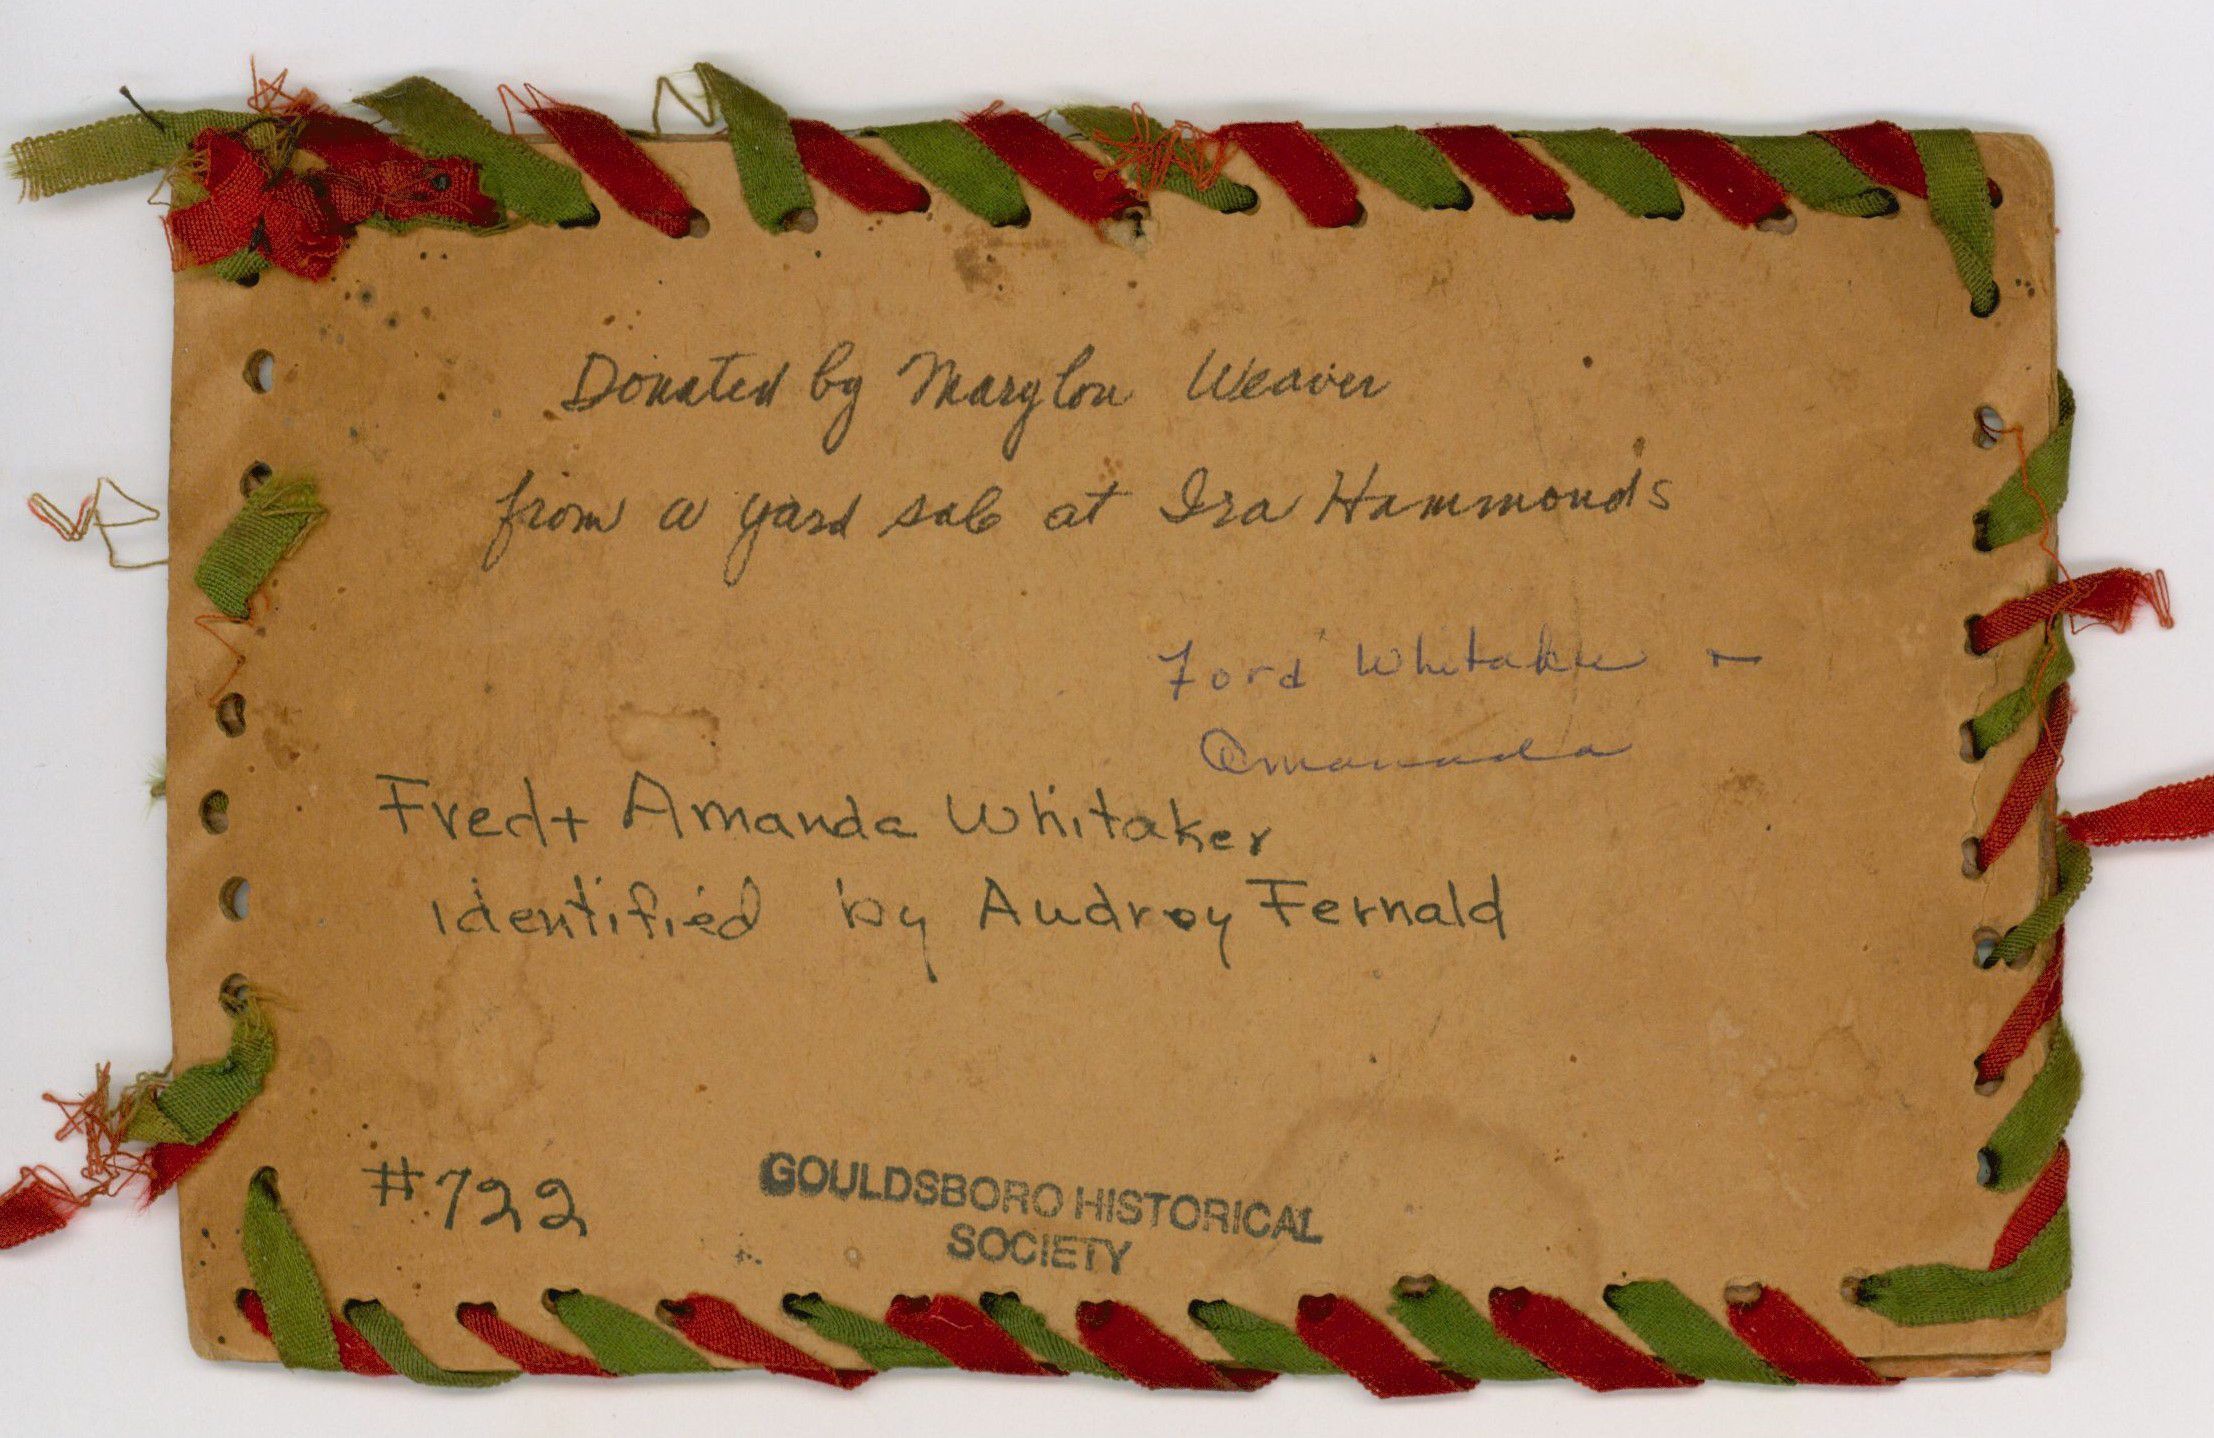 Donated by Marylou Weaver
from a yard sale at Ira Hammond's
Ford Whitaker -
Amanada
Fred + Amanda Whitaker
identified by Audrey Fernald
#722
GOULDSBORO HISTORICAL
SOCIETY